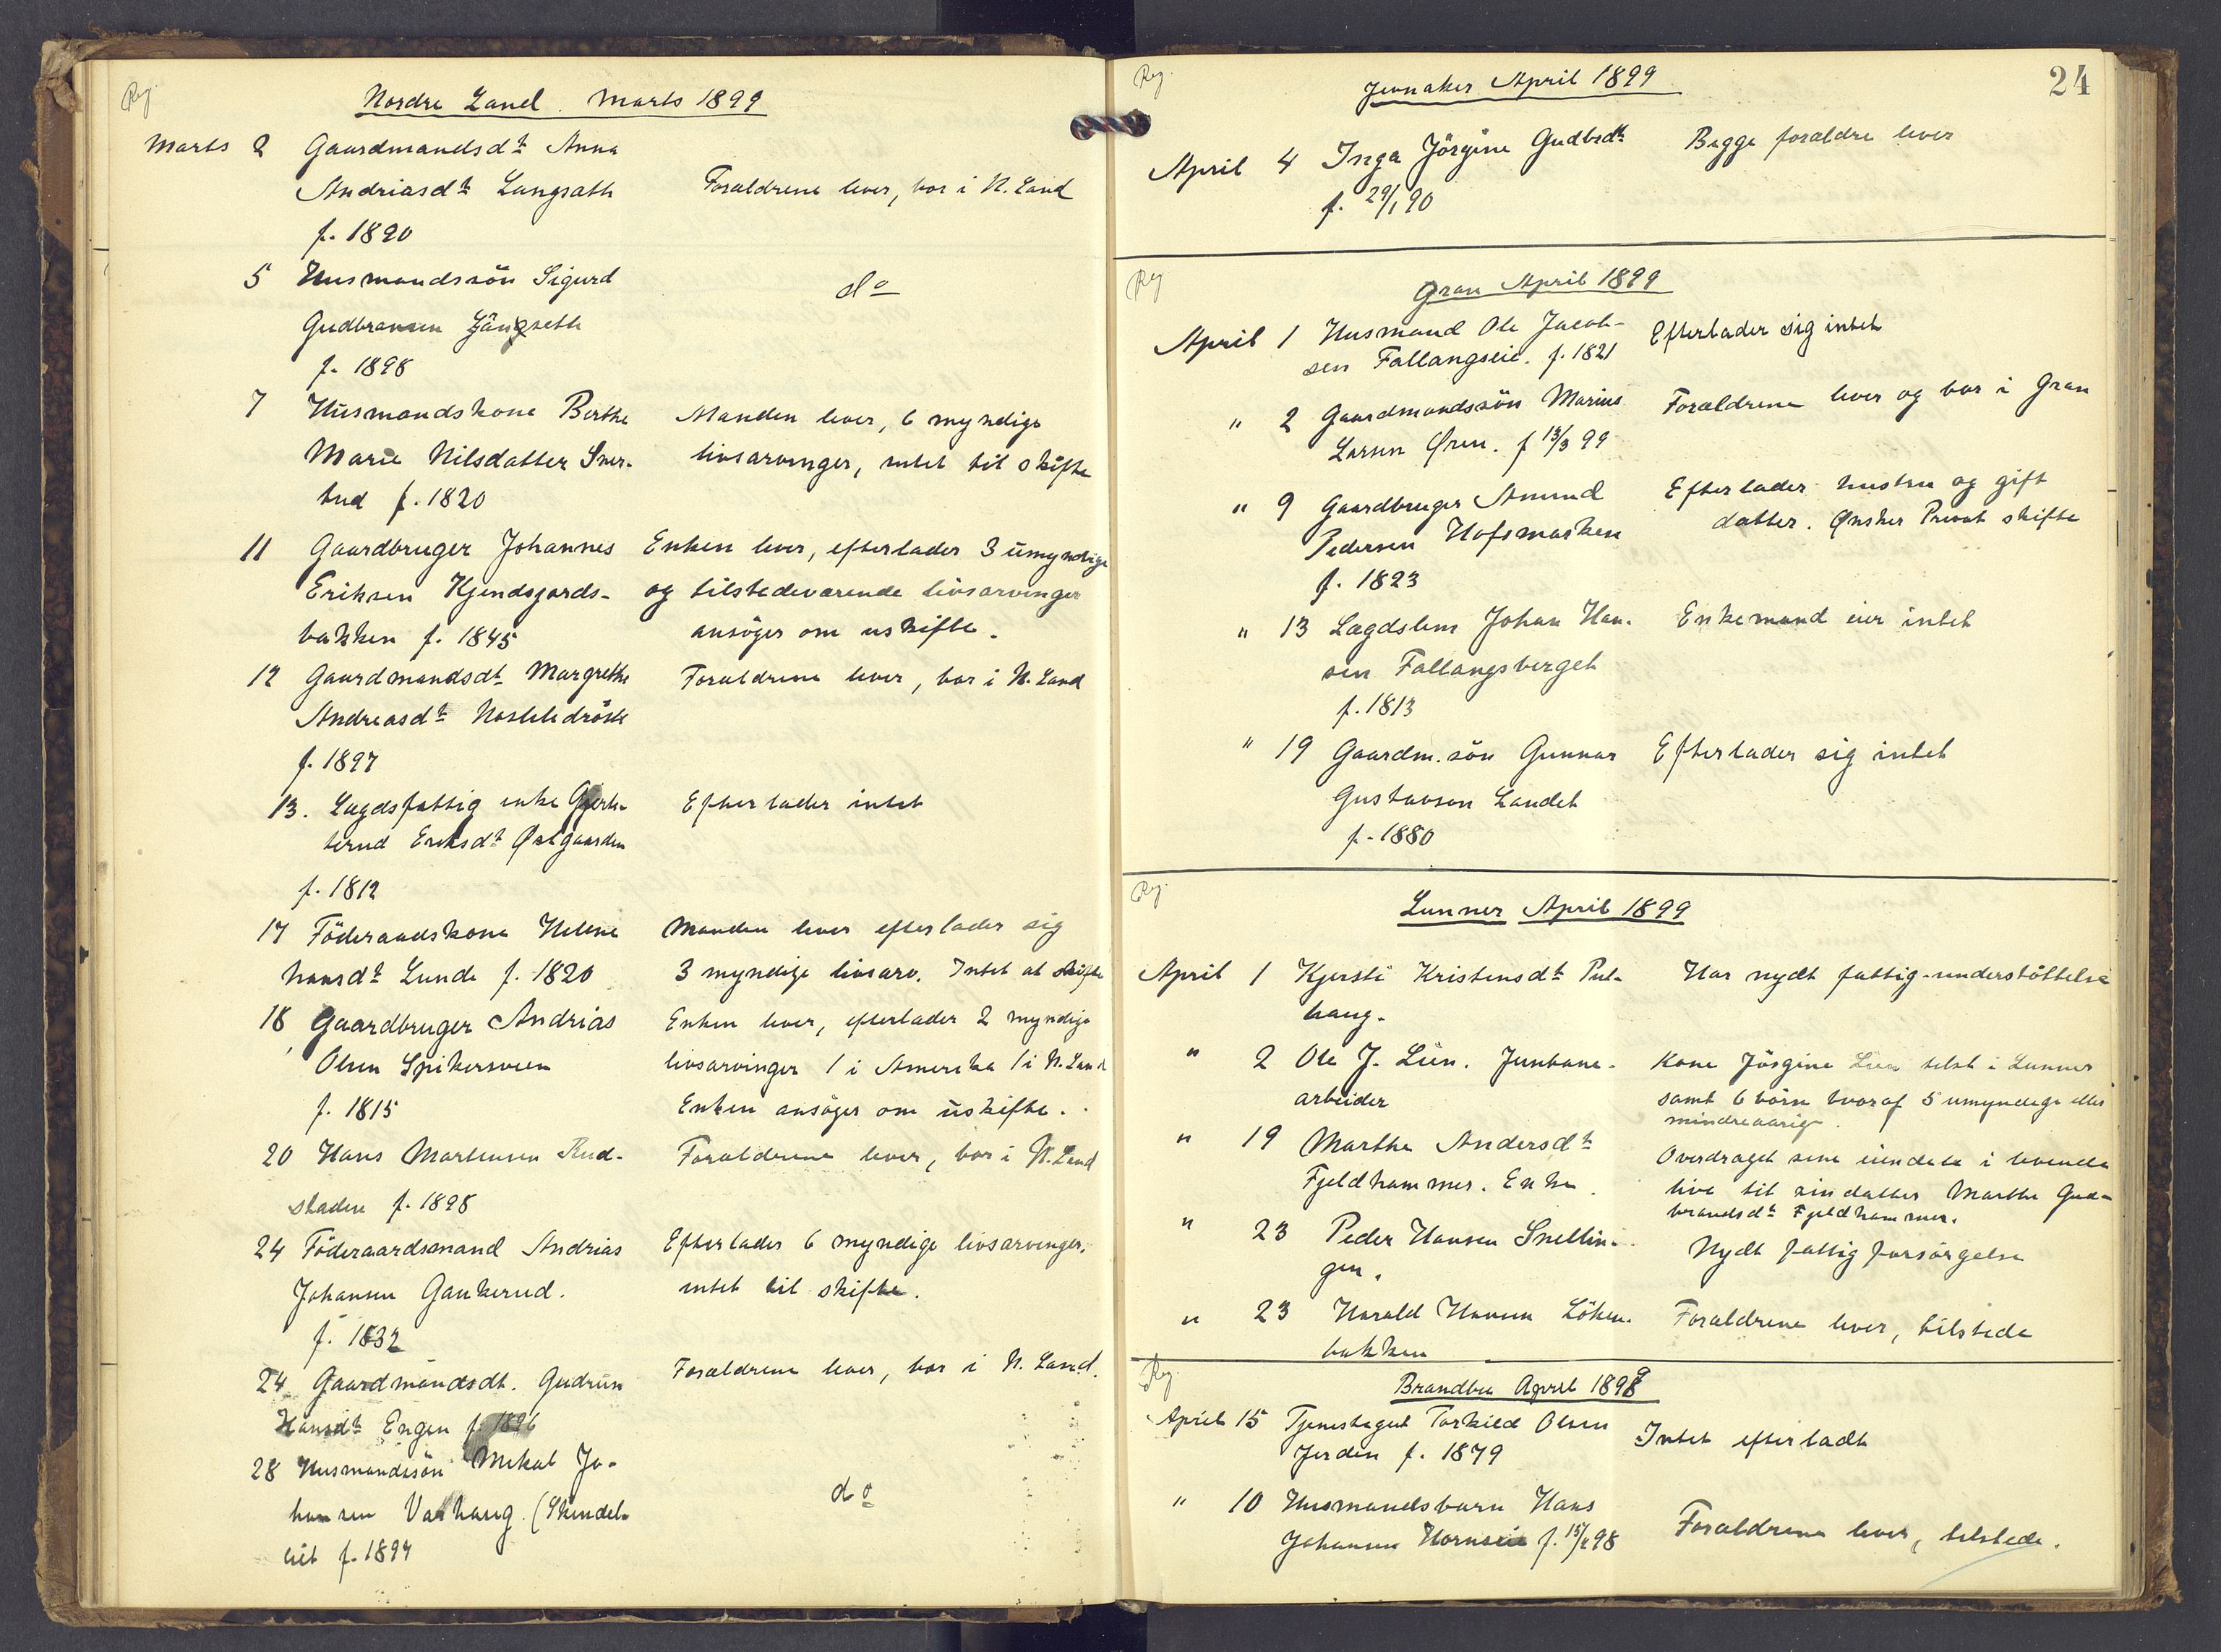 Reg.
Nordre Land. Marts 1899
Marts 2 Gaardmandsdt Anna
Andriasdt Langsæth Forældrene lever, bor i N. Land
f. 1890
5 Husmandssön Sigurd do
Gudbransen
f. 1898
7 Husmandskone Berthe Manden lever, 6 myndige
Marie Nilsdatter Sver- livsarvinger, intet til skifte
tud f. 1820
11 Gaardbruger Johannes Enken lever, efterlader 3 umyndige
Eriksen Kjendsgards- og tilstedeværende livsarvinger
bakken f. 1845 ansöger om uskifte.
12 Gaardmandsdt Margrethe Forældrene lever, bor i N. Land
Andreasdt
f. 1897
13. Lægdsfattig enke Efterlader intet
Eriksdt Østgaarden
f. 1812
17 Föderaadskone Helene Manden lever efterlader sig
hansdt Lunde f. 1820 3 myndige livsarv. Intet at skifte
18 Gaardbruger Andrias Enken lever, efterlader 2 myndige
Olsen Spikersveen livsarvinger 1 i Amerika 1 i N. Land
f. 1815 Enken ansöger om uskifte.
20 Hans Martensen Rud- Forældrene lever, bor i N. Land
staden f. 1898
24 Föderaardsmand Andrias Efterlader 6 myndige livsarvinger,
Johansen Gaukerud. intet til skifte.
f. 1832
24 Gaardmandsdt. Gudrun Forældrene lever, bor i N. Land.
Hansdt Engen f. 1896
28 Husmandssön Mekal Jo- do
hansen Valhaug. (Skindel-
lid f. 1894
24
Reg.
Jevnaker April 1899
April 4 Inga Jörgine Gudbsdt Begge forældre lever
f. 29/1 90
Reg
Gran April 1899
April 1 Husmand Ole Jacob- Efterlader sig intet
sen Fallangseie. f. 1821
" 2 Gaardmandssön Marius Forældrene lever og bor i Gran
Larsen Øren. f 13/3 99
" 9 Gaardbruger Amund Efterlader hustru og gift
Pedersen Hofsmarken datter. Ønsker Privat skifte
f. 1823
" 13 Lægdslem Johan Han- Enkemand eier intet
sen Fallangsberget
f. 1813
" 19 Gaardm. sön Gunnar Efterlader sig intet
Gustavson Landet
f. 1880
Reg.
Lunner April 1899
April 1 Kjersti Kristensdt Pul- Har nydt fattig-understöttelse
haug.
" 2 Ole J. Lien. Jernbane- Kone Jörgine Lien tilst i Lunner
arbeider samt 6 börn hvoraf 5 umyndige eller
mindreaarige.
" 19 Marthe Andersdt Overdraget sine eiendele i levende
Fjeldhammer. Enke. live til sin datter Marthe Gud-
brandsdt Fjeldhammer.
" 23 Peder Hansen Snellin- Nydt fattigforsörgelse
gen.
" 23 Harald Hansen Löken- Forældrene lever, tilstede
bakken
Reg.
Brandbu April 1899
April 15 Tjenestegut Torkild Olsen Intet efterladt
Jorden f. 1879
" 10 Husmandsbarn Hans Forældrene lever, tilstede.
Johansen Hornseie f. 98